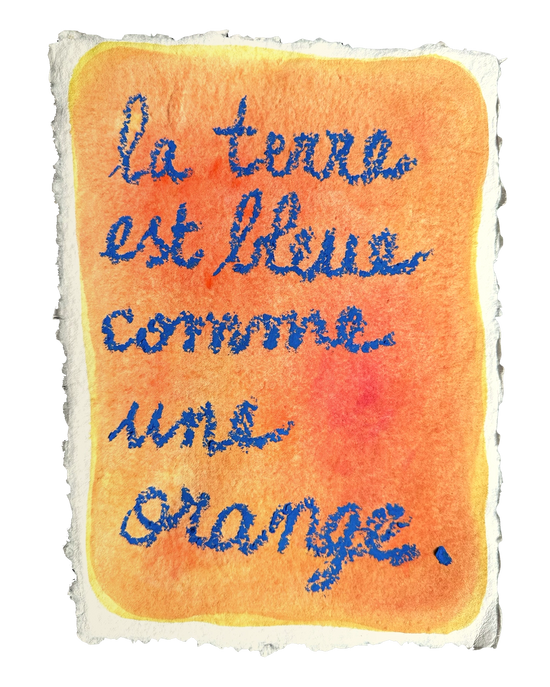 la terre
est bleue
comme
une
orange.